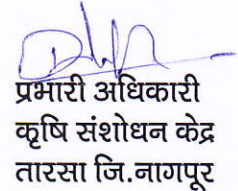 प्रभारी अधिकारी
कृषि संशोधन केद्र
तारसा जि.नागपूर